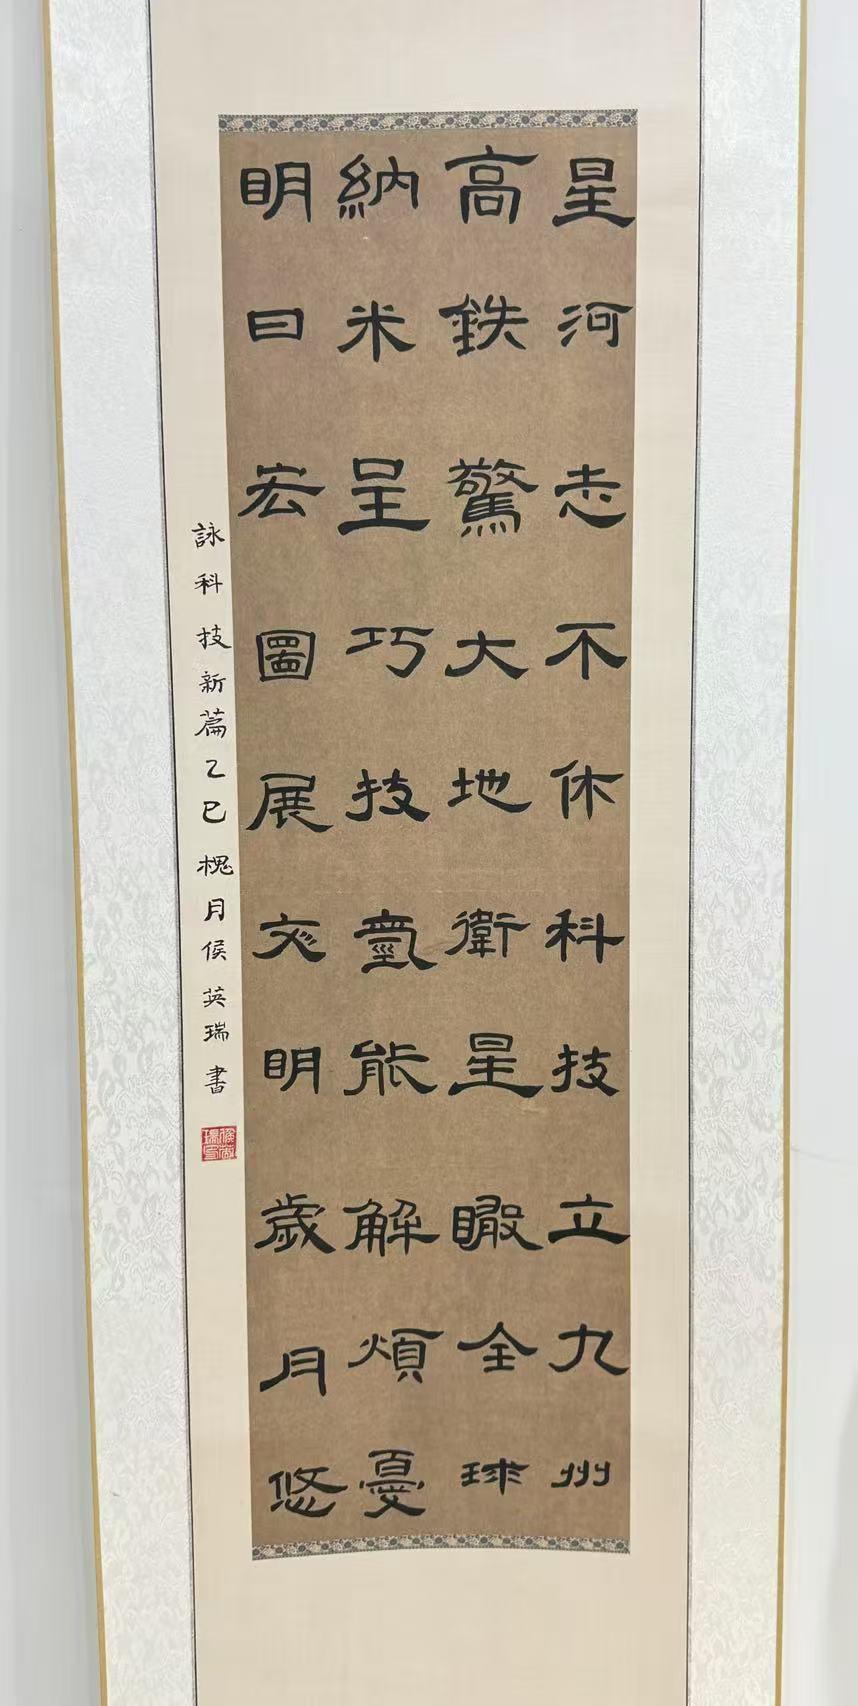 星河志不休科技立九州
高鉄驚大地衛星瞰全球
納米呈巧技氫能解煩憂
明日宏圖展文明歲月悠
詠科技新篇乙巳槐月侯英瑞書